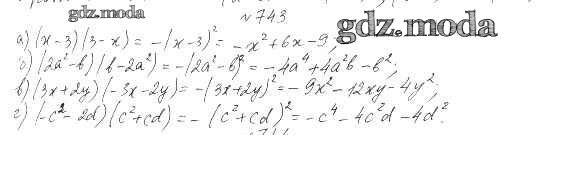 gdz.moda
№ 743
gdz.moda
а) (x-3)(3-x) = -(x-3)² = -x²+6x-9;
б) (2a²-b)(b-2a²) = -(2a²-b)² = -4a⁴+4a²b-b²;
в) (3x+2y)(-3x-2y) = -(3x+2y)² = -9x²-12xy-4y²;
г) (-c²-2d)(c²+cd) = -(c²+cd)² = -c⁴-4c²d-4d².